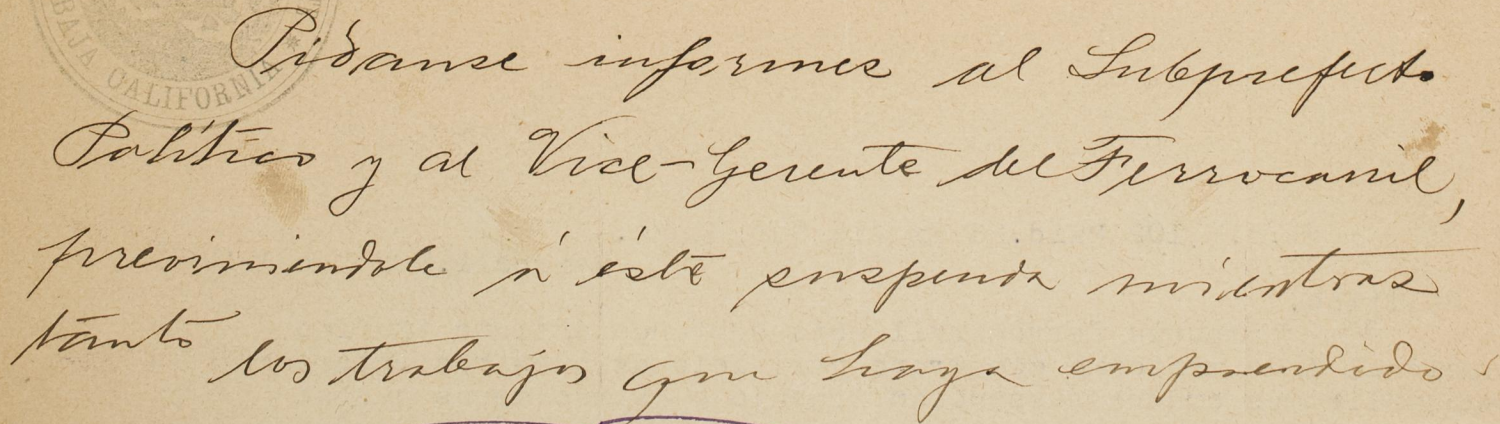 BAJA CALIFORNIA
Pídanse informes al Subprefecto
Político y al Vice-Gerente del Ferrocarril,
previniendole á éste suspenda mientras
tanto los trabajos que haya emprendido.